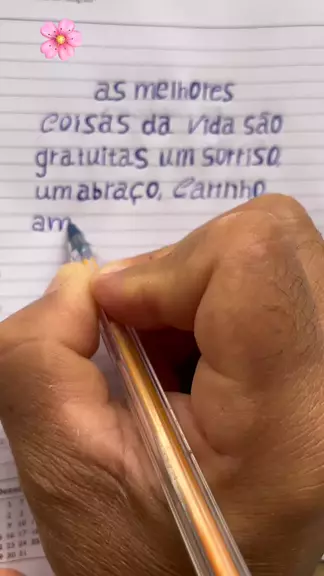 as melhores
coisas da vida são
gratuitas um sorriso,
um abraço, carinho
am